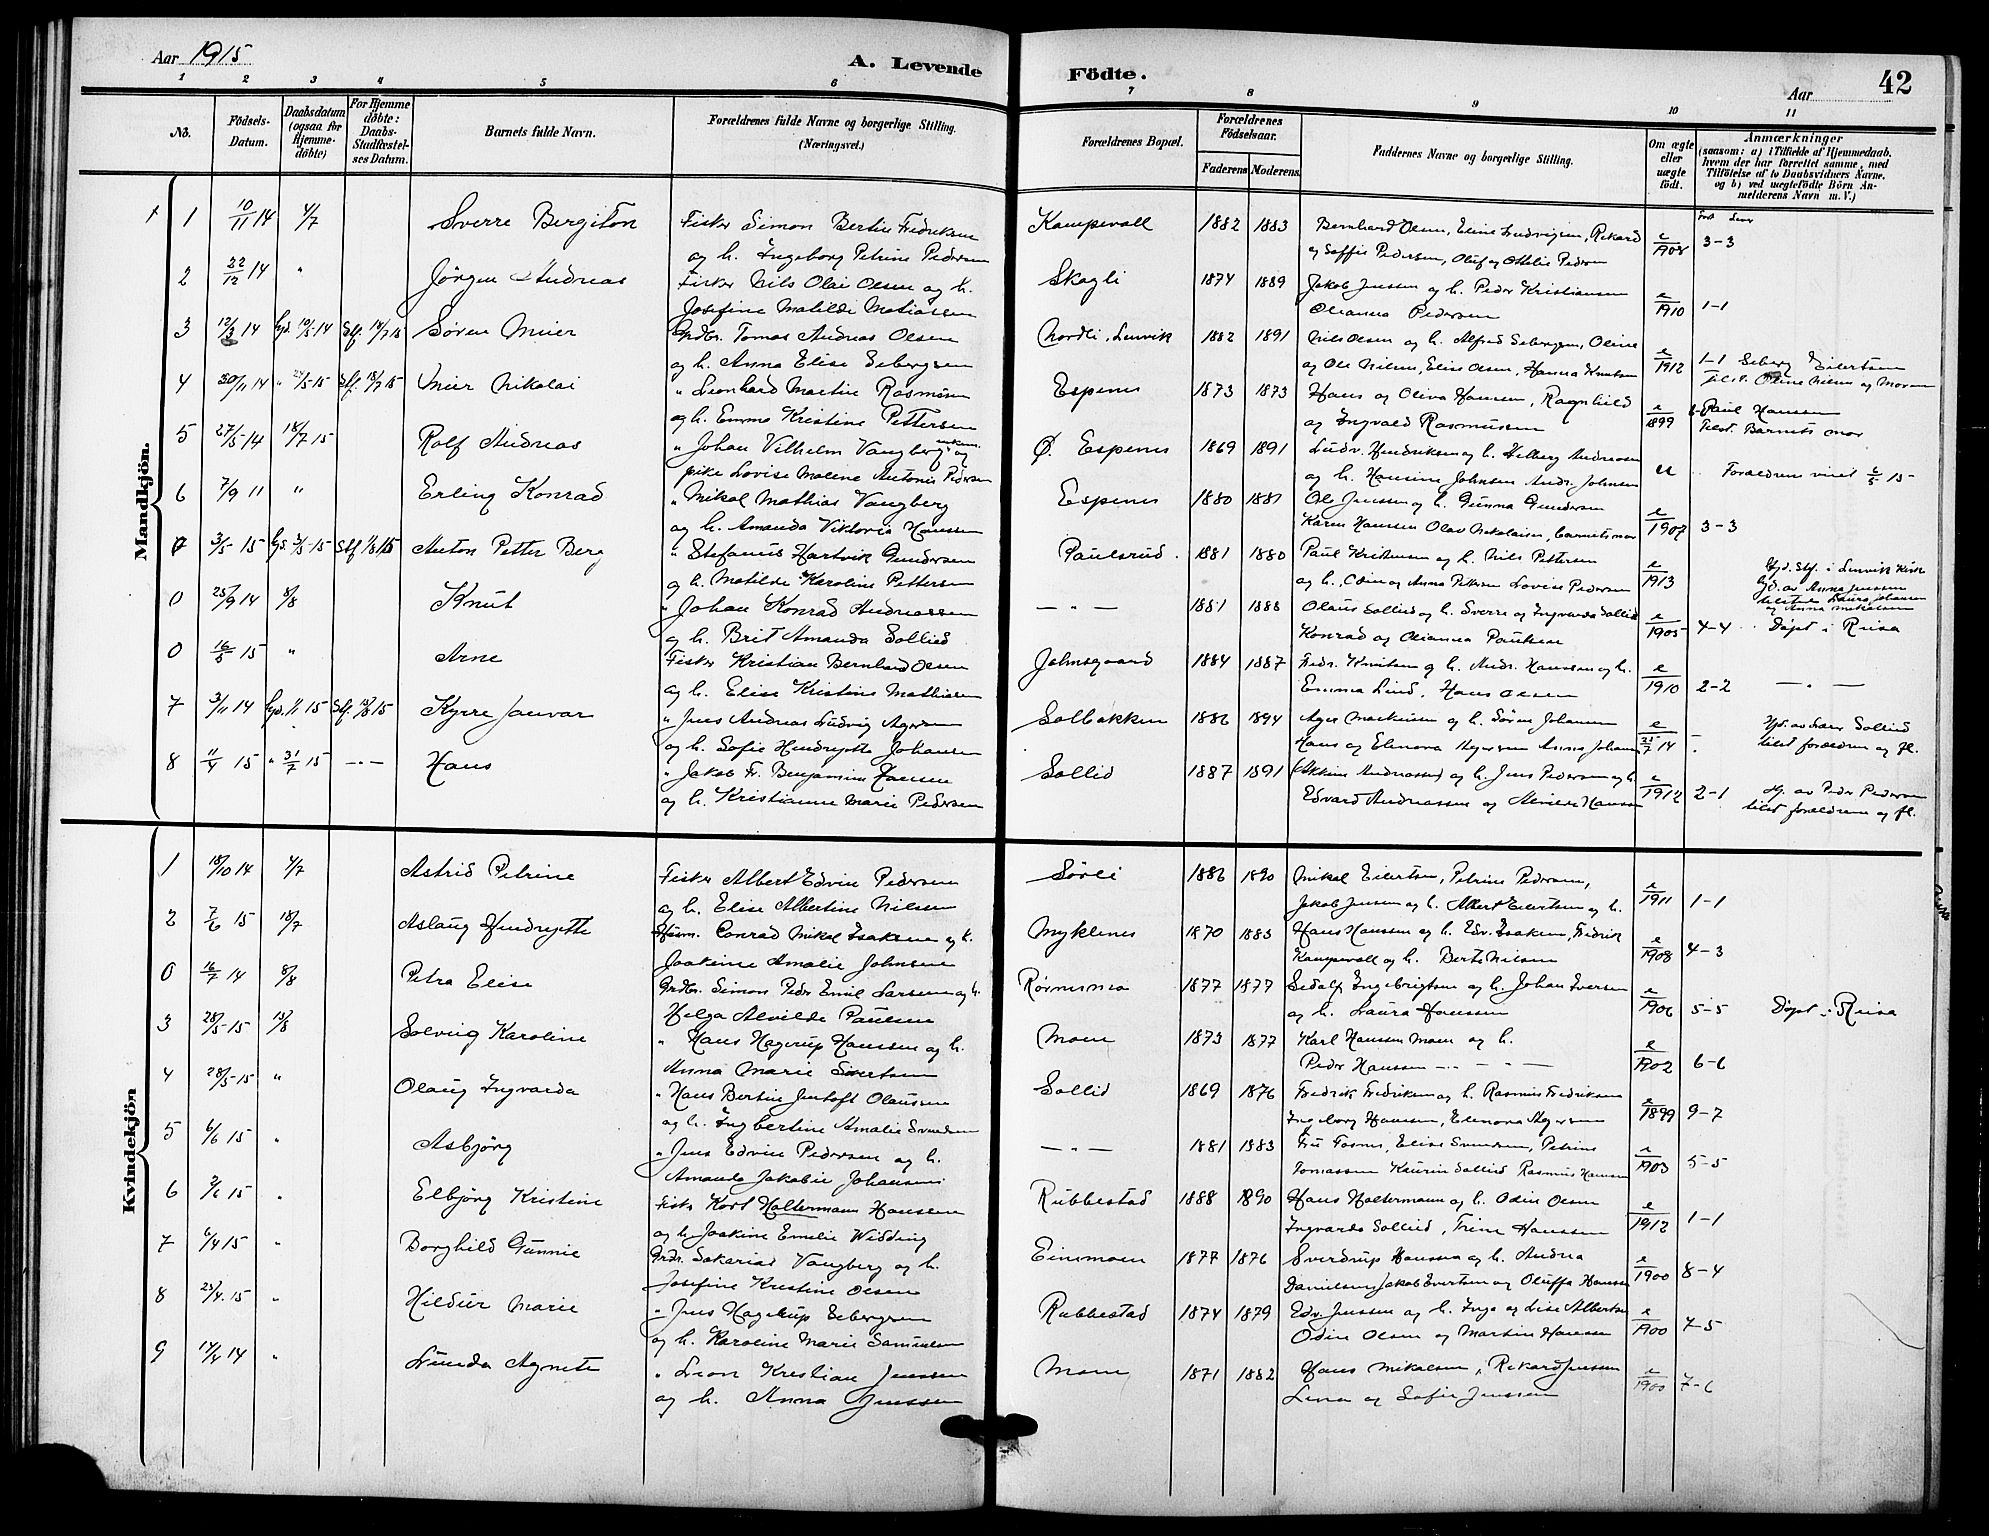 Aar 1915
A. Levende
Födte.
42
Aar
1 2 3 4 5 6 7 8 9 10 11
No.
Födsels-
Datum.
Daabsdatum
(ogsaa for
Hjemme-
döbte)
For Hjemme
døbte:
Daabs-
Stadfæstel-
ses Datum.
Barnets fulde Navn.
Forældrenes fulde Navne og borgerlige Stilling.
(Næringsvei.)
Forældrenes Bopæl.
Forældrenes
Födselsaar.
Faderens
Moderens
Faddernes Navne og borgerlige Stilling.
Om ægte
eller
uægte
födt.
Anmærkninger
(saasom: a) i Tilfælde af Hjemmedaab,
hvem der har forrettet samme, med
Tilföielse af to Daabsvidners Navne.
og b) ved uægtefödte Börn An-
melderens Navn m. V.)
Mandkjön.
1 10/11 14 4/7 Sverre Bergiton Fisker Simon Bertin Fedriksen Kampevoll 1882 1883 Bernhard Olsen, Eline Ludvigsen, Rikard
og h. Ingeborg Petrine Pedersen og Soffie Pedersen, Oluf og Otelie Pedersen e/1908 3-3
2 22/12 14 " Jörgen Andreas Fisker Nils Olai Olsen og h. Skogli 1874 1889 Jakob Jenssen og h. Peder Kristiansen
Josefine Matilde Matiassen Olianna Pedersen e/1910 1-1
3 12/3 14 Søren Meier Grdbr. Tomas Andreas Olsen Nordli, Lenvik 1882 1891 Nils Olsen og h. Alfred Sebergsen, Oline
og h. Anna Elise Sebergsen og Ole Nilsen, Elise Olsen, Hanna Knutsen e/1912 1-1 Seberg Eilertsen
4 30/11 14 Meier Nikolai " Leonhard Martin Rasmusen Espenes 1873 1873 Hans og Oliva Hansen, Ragnhild
og h. Emma Kristine Pettersen og Ingvald Rasmussen e/1899 Paul Hansen
tilst. Barnets mor
5 27/5 14 18/7 15 Rolf Andreas " Johan Vilhelm Vangberg og Ø. Espenes 1869 1891 Ludv. Hendriksen og h. Helberg Andreassen
pike Lovise Malene Antonie Pedersen og h. Hansine Johnsen Andr. Johnsen u Foreldrene viet 15
6 7/9 11 " Erling Konrad " Mikal Mathias Vangberg Espenes 1880 1881 Ole Jenssen og h. Gunna Gundersen
og h. Amanda Viktoria Hanssen Karen Hanssen Olav Nikolaisen, barnets mor e/1907 3-3
3/5 15 Anton Petter Berg " Stefanus Hartvik Gundersen Paulsrud. 1881 1880 Paul Kristensen og h. Nils Pettersen
og h. Matilde Karoline Pettersen og h., Odin og Anna Pettersen Lovise Pedersen e/1913 i Lenvik Kirke
av Anna Jenssen
tilstede Laura Johansen
og Anna Mikalsen
0 25/9 14 8/8 Knut " Johan Konrad Andreassen — " — 1881 1888 Olaus Sollied og h. Sverre og Ingvarda Sollied
og h. Brit Amanda Sollied Konrad og Olianna Paulsen e/1905 4-4 Døpt i Reisa
0 16/5 15 " Arne Fisker Kristian Bernhard Olsen Johnsgaard 1884 1887 Fredr. Knutsen og h. Andr. Hanssen og h.
og h. Elise Kristine Mathisen Emma Lind, Hans Olsen e/1910 2-2 — " —
7 3/11 14 Kyrre Januar " Jens Andreas Ludvig Agersen Solbakken 1886 1894 Ager Markusen og h. Sören Johansen
og h. Sofie Hendrijette Johansen Hans og Elenora Agersen Anna Johansen Sollied
tilst. foreldrene og fl.
8 11/4 15 " 31/7 15 — Hans " Jakob Fr. Benjamin Hansen Sollid 1887 1891 Andreassen og h. Jens Pedersen og h.
og h. Kristianne Marie Pedersen Edvard Andreassen og Alvilde Hanssen e/1912 2-1 Hj. av Peder Pedersen
tilst foreldrene og fl.
Kvindekjön
1 18/10 14 4/7 Astrid Petrine Fisker Albert Edvin Pedersen Sørli 1886 1890 Mikal Eilertsen, Petrine Pedersen,
og h. Elise Albertine Nilsen Jakob Jensen og h. Albert Eilertsen og h. e/1911 1-1
2 7/6 15 18/7 Aslaug Hendrijette Conrad Mikal Isaksen og h. Myklenes 1870 1883 Hans Hanssen og h. Edv. Isaksen, Fredrik
Joakime Amalie Johnsen Kampevoll og h. Berte Nilsen e/1908 4-3
0 16/7 14 8/8 Petra Elise Grdbr. Simon Peder Emil Larsen og h. 1877 1877 Sedolf Ingebrigtsen og h. Johan Iversen
Helga Alvilde Paulsen og h. Laura Hanssen e/1906 5-5 Døpt i Reisa
3 28/5 15 15/8 Solveig Karoline " Hans Hagerup Hanssen og h. Moen 1873 1877 Karl Hanssen Moen og h.
Anna Marie Sivertsen Peder Hanssen — " — e/1902 6-6
4 28/5 15 " Olaug Ingvarda " Hans Bertin Jentoft Olaussen Sollid 1869 1876 Fredrik Fredriksen og h. Rasmus Fredriksen
og h. Ingbertine Amalie Svendsen Ingeborg Hanssen, Elenora Agersen e/1899 9-7
5 6/6 15 " Asbjörg " Jens Edvin Pedersen og h. — " — 1881 1883 Fru Fosnes, Elise Svendsen, Petrine
Amanda Jakobie Johansen Tomassen Kaurin Sollied Rasmus Hansen e/1903 5-5
6 15 " Elbjörg Kristine Fisker Karl Holtermann Hanssen Rubbestad 1888 1890 Hans Holtermann og h. Odin Olsen
og h. Joakine Emelie Widding Ingvarda Sollied, Trine Hanssen e/1912 1-1
7 6/4 15 " Borghild Gunnie Grdbr. Sakarias Vangberg og h. Einmoen 1877 1876 Sverdrup Hanssen og h. Andrea
Josefine Kristine Olsen Danielsen, Jakob Evertsen og Oluffa Hanssen e/1900 8-4
8 23/4 15 " Hildur Marie " Jens Hagerup Sebergsen Rubbestad 1874 1879 Edv. Jenssen og h. Inga og Lise Albertsen
og h. Karoline Marie Samuelsen Odin Olsen og Martin Hanssen e/1900 7-5
9 17/4 14 " Lunda Agnete " Leon Kristian Jenssen Moen 1871 1882 Hans Mikalsen, Rikard Jenssen
og h. Anna Jenssen Lina og Sofie Jenssen e/1900 7-6